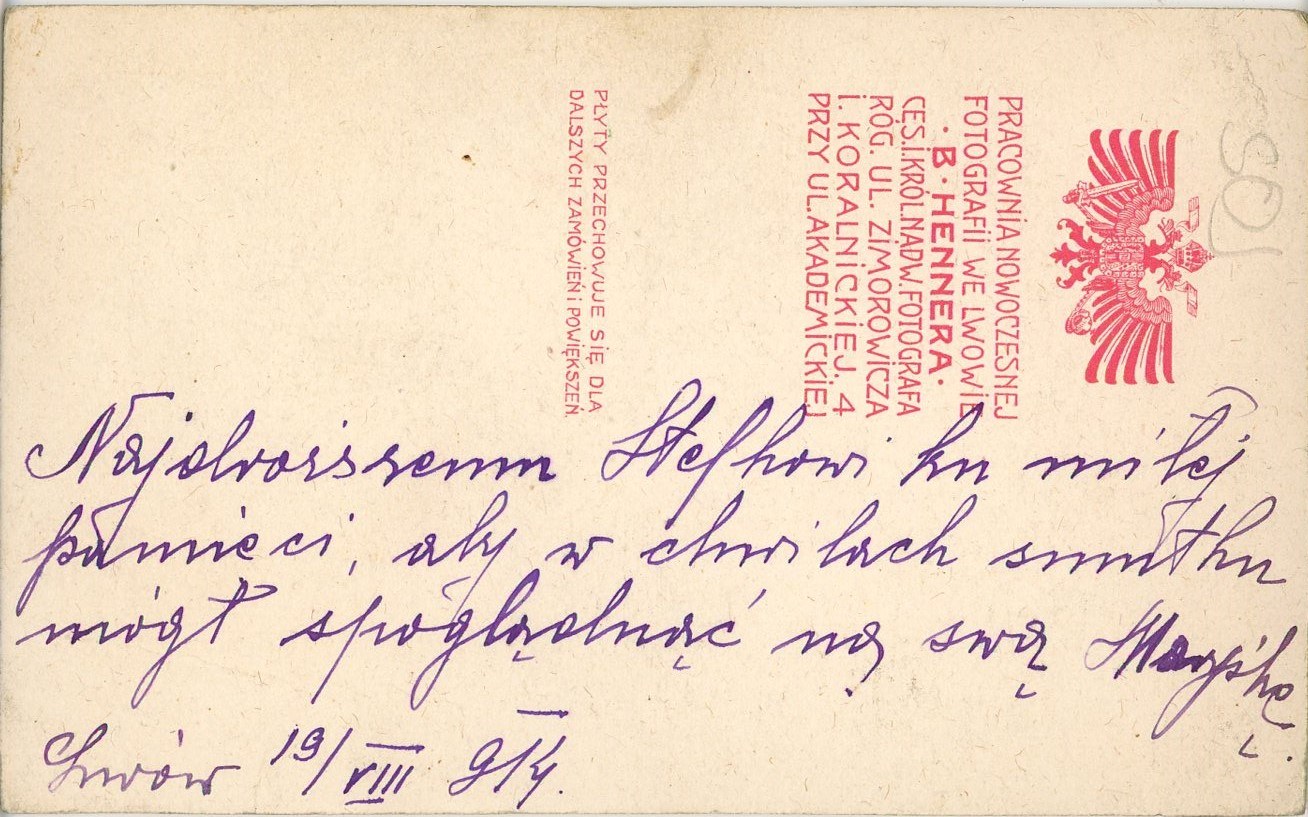 PRACOWNIA NOWOCZESNEJ
FOTOGRAFII WE LWOWIE
· B · HENNERA ·
CES. I. KRÓL. NADW. FOTOGRAFA
RÓG. UL. ZIMOROWICZA
I. KORALNICKIEJ. 4
PRZY UL. AKADEMICKIEJ
PŁYTY PRZECHOWUJE SIĘ DLA
DALSZYCH ZAMÓWIEŃ I POWIĘKSZEŃ
Najdroższemu Stefkowi ku miłej
pamięci, aby w chwilach smutku
mógł spoglądnąć na swą Maryśkę.
Lwów 19/VIII 914.